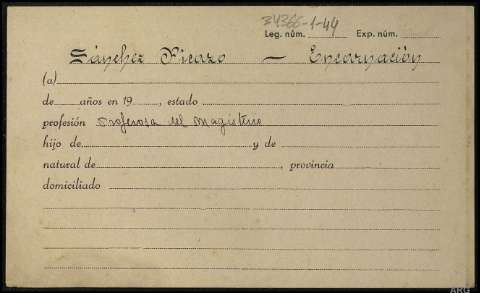 B4366-1-44
Leg. núm. Exp. núm.
Sánchez Picazo — Encarnación
(a)
de años en 19 , estado
profesión Profesora del Magisterio
hijo de y de
natural de , provincia
domiciliado
ARG